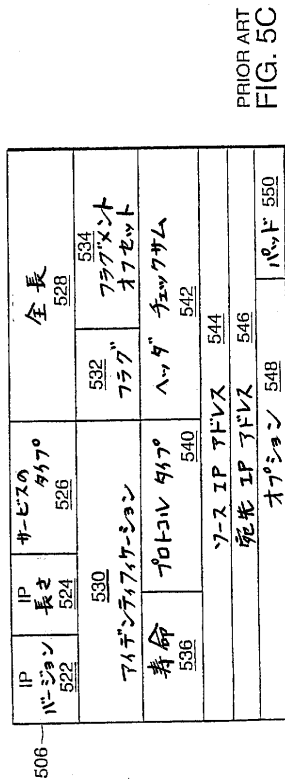 506
IP
バージョン
522
IP
長さ
524
サービスの
タイプ
526
全長
528
530
アイデンティフィケーション
532
フラグ
534
フラグメント
オフセット
寿命
536
プロトコル タイプ
540
ヘッダ チェックサム
542
ソース IP アドレス 544
宛先 IP アドレス 546
オプション 548
パッド 550
PRIOR ART
FIG. 5C